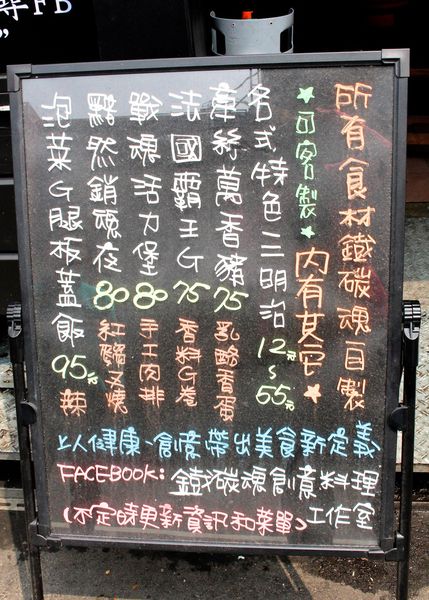 尋FB
所有食材鐵碳魂自製
★可客製★ 內有其它★
各式特色三明治 12元~55元
牽絲萬香豬 75 乳酪香蛋
法國霸王G 75 香料G
戰魂活力堡 80 手工肉排
黯然銷魂夜 80 紅 叉燒
泡菜G腿板蓋飯 95元 辣
以健康、創意帶出美食新定義
FACEBOOK: 鐵碳魂創意料理
(不定時更新資訊和菜單) 工作室